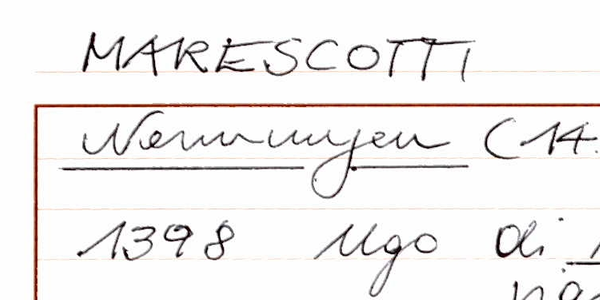 MARESCOTTI
Nennungen (14.
1398 Ugo di